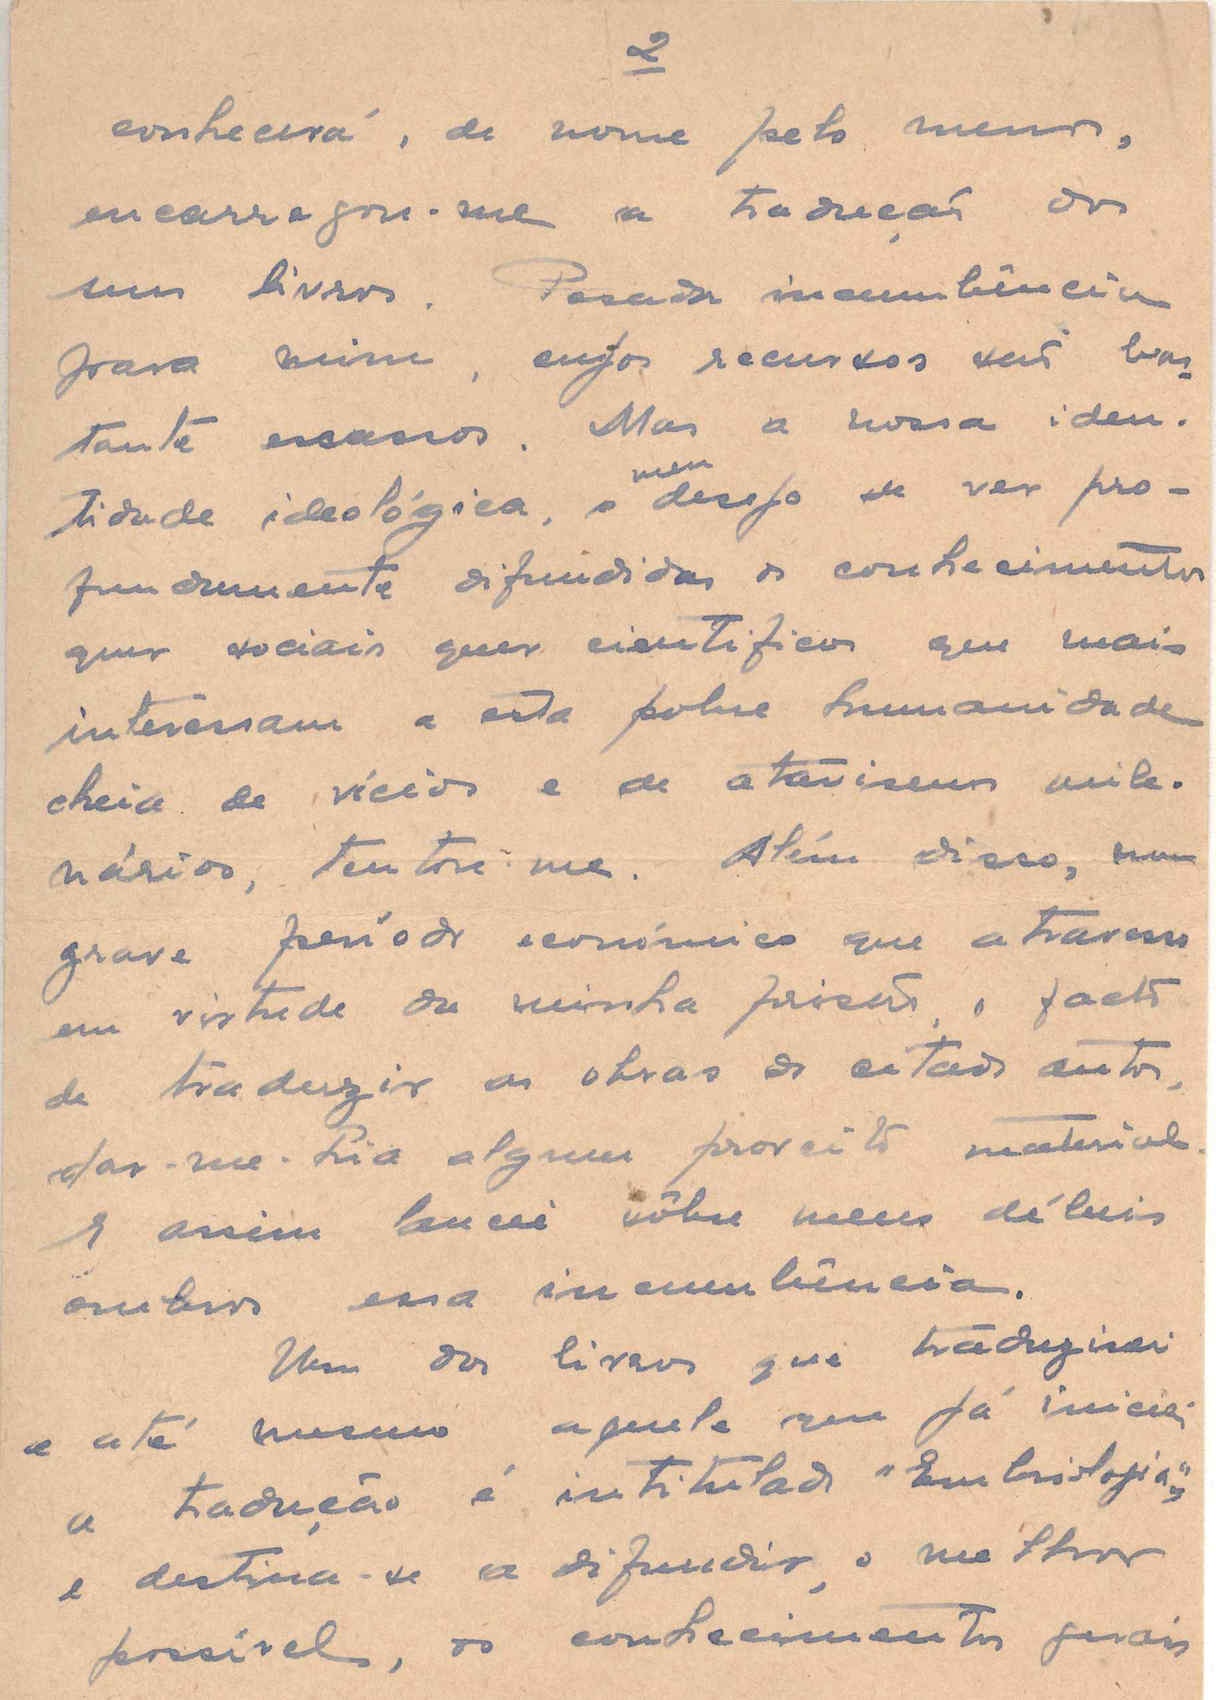 2
conhecerá, de nome pelo menos,
encarregou-me a tradução dos
seus livros. Pesada incumbência
para mim, cujos recursos são bas-
tante escassos. Mas a nossa iden-
tidade ideológica, o meu desejo de ver pro-
fundamente difundidos os conhecimentos
quer sociais quer científicos que mais
interessam a esta pobre humanidade
cheia de vícios e de atavismos mile-
nários, tentou-me. Além disso, num
grave período económico que atravesso
em virtude da minha prisão, o facto
de traduzir as obras do citado autor,
dar-me-hia algum proveito material.
E assim lancei sôbre meus débeis
ombros essa incumbência.
Um dos livros que traduzirei
e até mesmo aquele que já iniciei
a tradução é intitulado "Embriologia",
e destina-se a difundir, o melhor
possível, os conhecimentos gerais